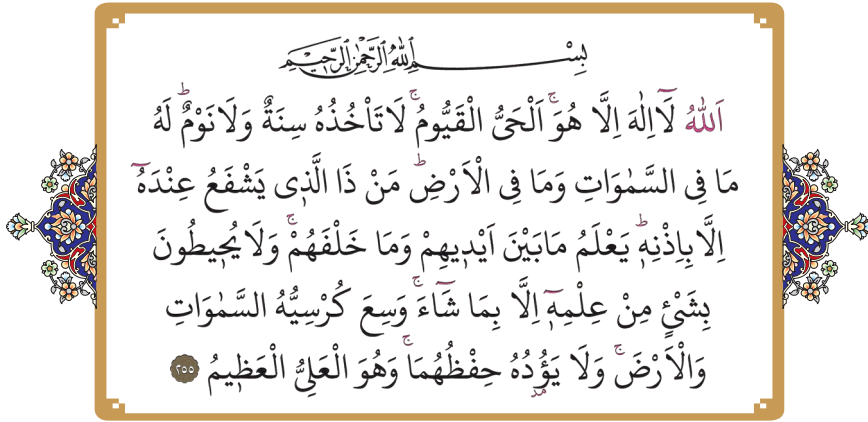 بِسْمِ اللهِ الرَّحْمٰنِ الرَّحِيْمِ
اَللّٰهُ لَٓا اِلٰهَ اِلَّا هُوَۚ اَلْحَيُّ الْقَيُّومُۚ لَا تَاْخُذُهُ سِنَةٌ وَلَا نَوْمٌۜ لَهُ
مَا فِي السَّمٰوَاتِ وَمَا فِي الْاَرْضِۜ مَنْ ذَا الَّذ۪ي يَشْفَعُ عِنْدَهُٓ
اِلَّا بِاِذْنِه۪ۜ يَعْلَمُ مَا بَيْنَ اَيْد۪يهِمْ وَمَا خَلْفَهُمْۚ وَلَا يُح۪يطُونَ
بِشَيْءٍ مِنْ عِلْمِه۪ٓ اِلَّا بِمَا شَٓاءَۚ وَسِعَ كُرْسِيُّهُ السَّمٰوَاتِ
وَالْاَرْضَۚ وَلَا يَؤُ۫دُهُ حِفْظُهُمَاۚ وَهُوَ الْعَلِيُّ الْعَظ۪يمُ ٢٥٥